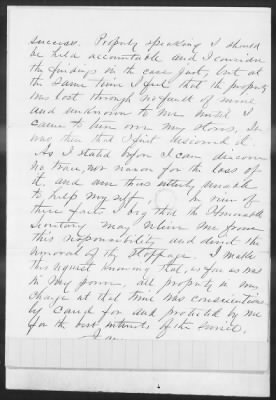 success. Properly speaking I should
be held accountable and I consider
the findings in the case just, but at
the same time I feel that the property
was lost through no fault of mine
and unknown to me until I
came to turn over my stores, It
was then that I first discovered it.
As I stated before I can discover
no trace, nor reason for the loss of
it, and am thus utterly unable
to help myself. In view of
these facts I beg that the Honorable
Secretary may relieve me from
this responsibility and direct the
removal of the stoppage. I make
this request knowing that, as far as was
in my power, all property in my
charge at that time was conscientious
ly cared for and protected by me
for the best interests of the service,
I am